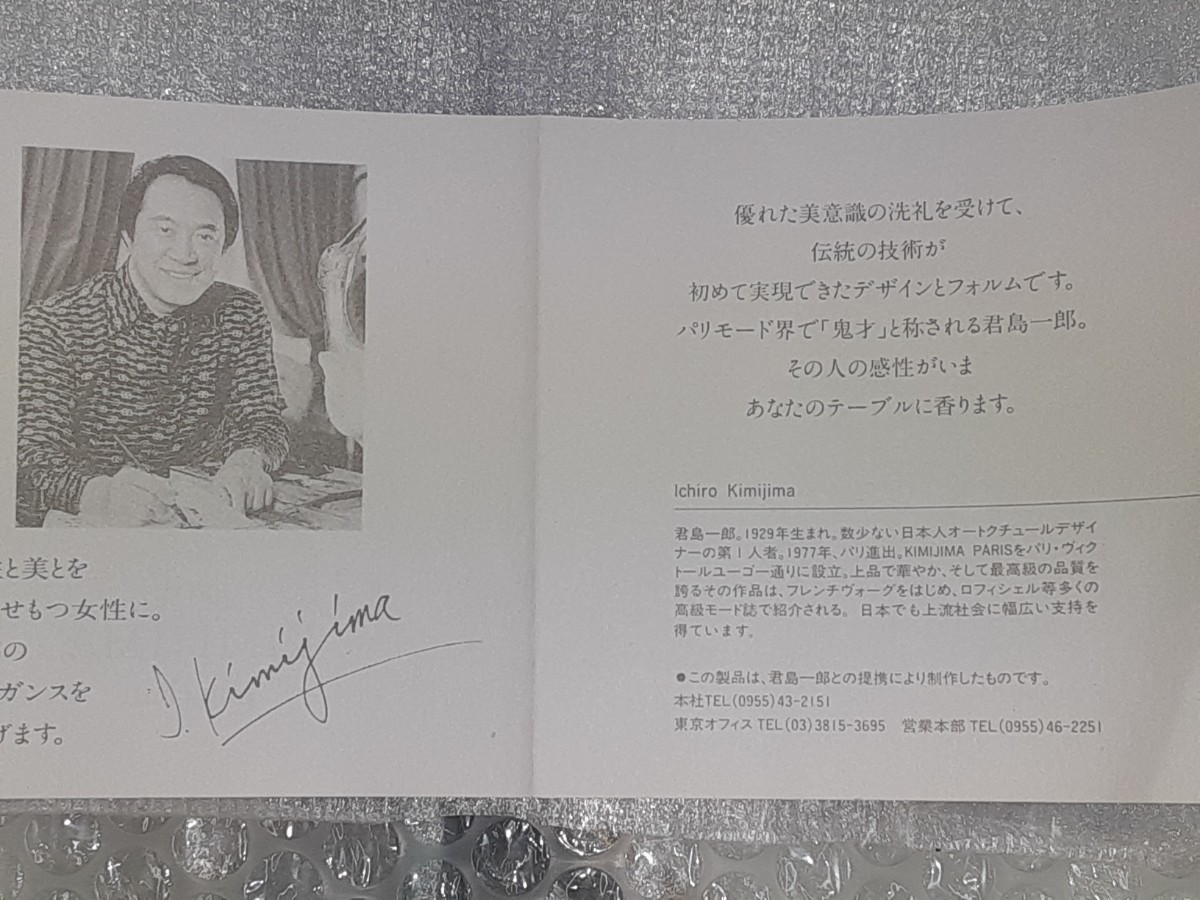 と美とを
せもつ女性に。
の
ガンスを
げます。
I. Kimijima
優れた美意識の洗礼を受けて、
伝統の技術が
初めて実現できたデザインとフォルムです。
パリモード界で「鬼才」と称される君島一郎。
その人の感性がいま
あなたのテーブルに香ります。
Ichiro Kimijima
君島一郎。1929年生まれ。数少ない日本人オートクチュールデザイ
ナーの第1人者。1977年、パリ進出。KIMIJIMA PARISをパリ・ヴィク
トールユーゴー通りに設立。上品で華やか、そして最高級の品質を
誇るその作品は、フレンチヴォーグをはじめ、ロフィシェル等多くの
高級モード誌で紹介される。日本でも上流社会に幅広い支持を
得ています。
●この製品は、君島一郎との提携により制作したものです。
本社TEL(0955)43-2151
東京オフィスTEL(03)3815-3695 営業本部TEL(0955)46-2251